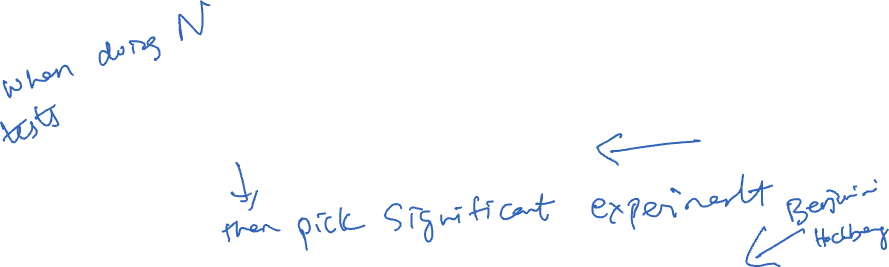 when doing N
tests
then pick significant experiment
Benjamini
Hochberg